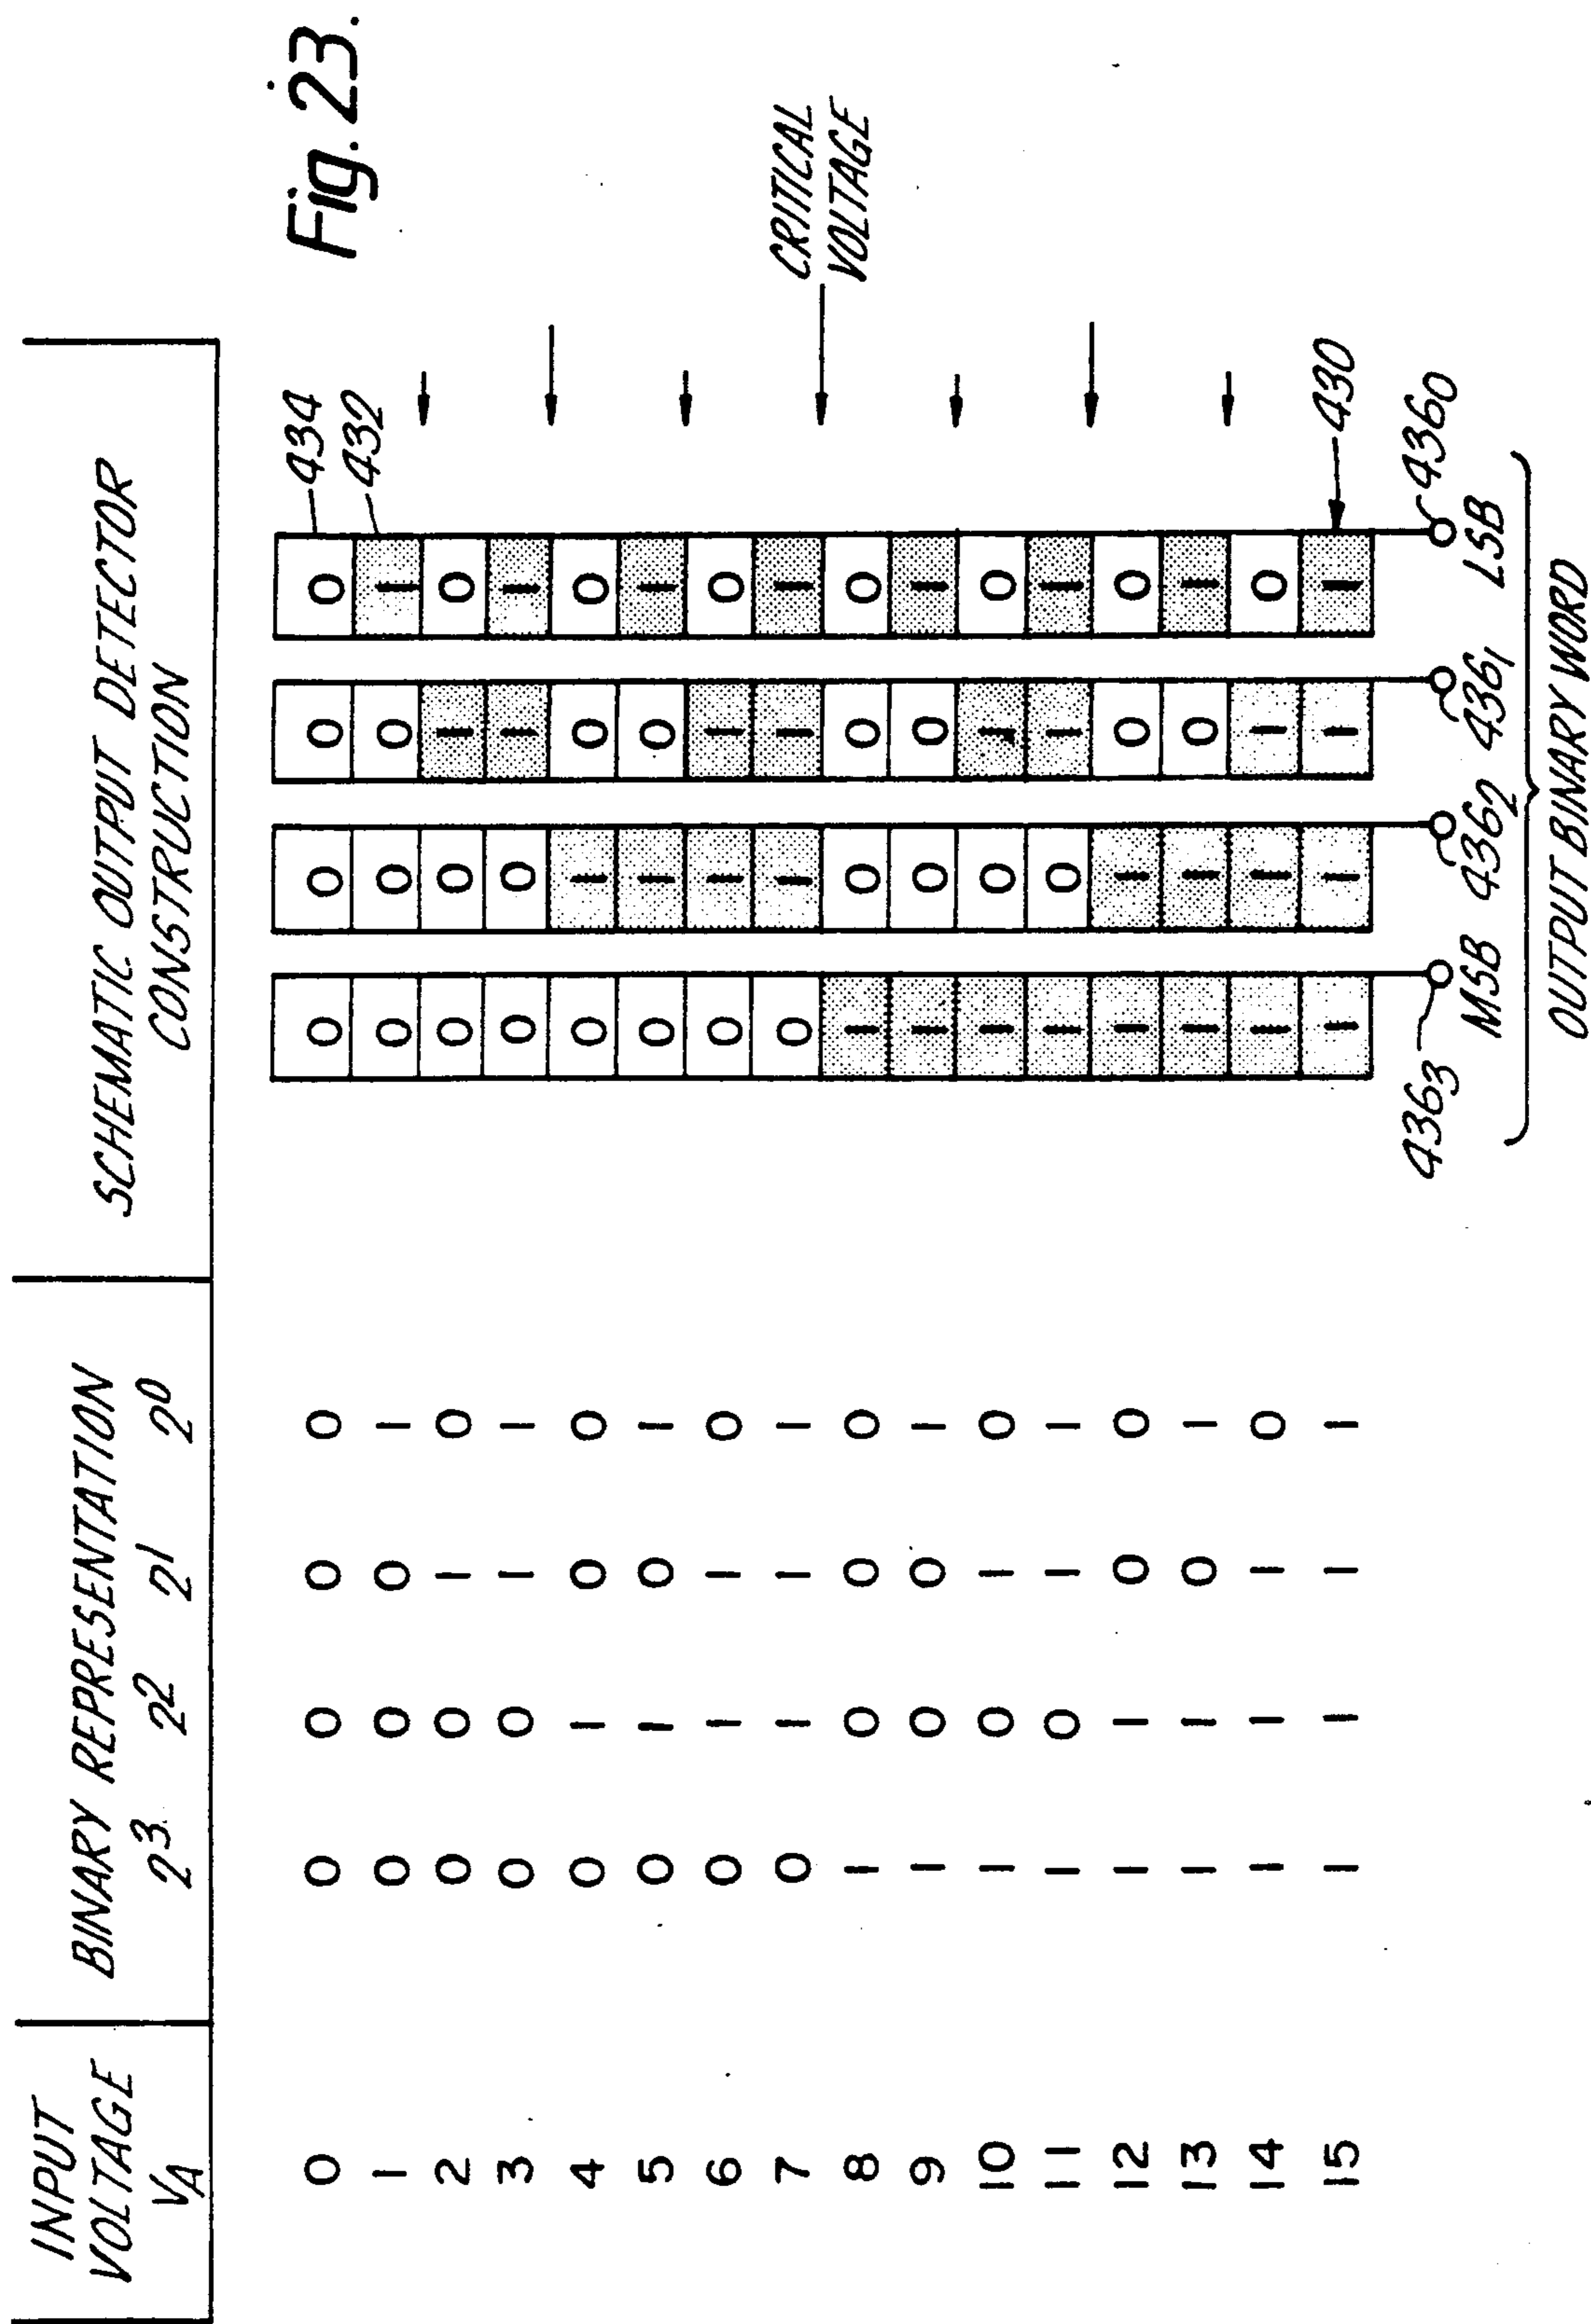 Fig. 23.
INPUT
VOLTAGE
VA
BINARY REPRESENTATION
2³ 2² 2¹ 2⁰
SCHEMATIC OUTPUT DETECTOR
CONSTRUCTION
0 0 0 0 0 0 0 0 0 434
1 0 0 0 1 0 0 0 1 432
2 0 0 1 0 0 0 1 0
3 0 0 1 1 0 0 1 1
4 0 1 0 0 0 1 0 0
5 0 1 0 1 0 1 0 1
6 0 1 1 0 0 1 1 0
7 0 1 1 1 0 1 1 1
CRITICAL
VOLTAGE
8 1 0 0 0 1 0 0 0
9 1 0 0 1 1 0 0 1
10 1 0 1 0 1 0 1 0
11 1 0 1 1 1 0 1 1
12 1 1 0 0 1 1 0 0
13 1 1 0 1 1 1 0 1
14 1 1 1 0 1 1 1 0
15 1 1 1 1 1 1 1 1 430
436₃ 436₂ 436₁ 436₀
MSB LSB
OUTPUT BINARY WORD